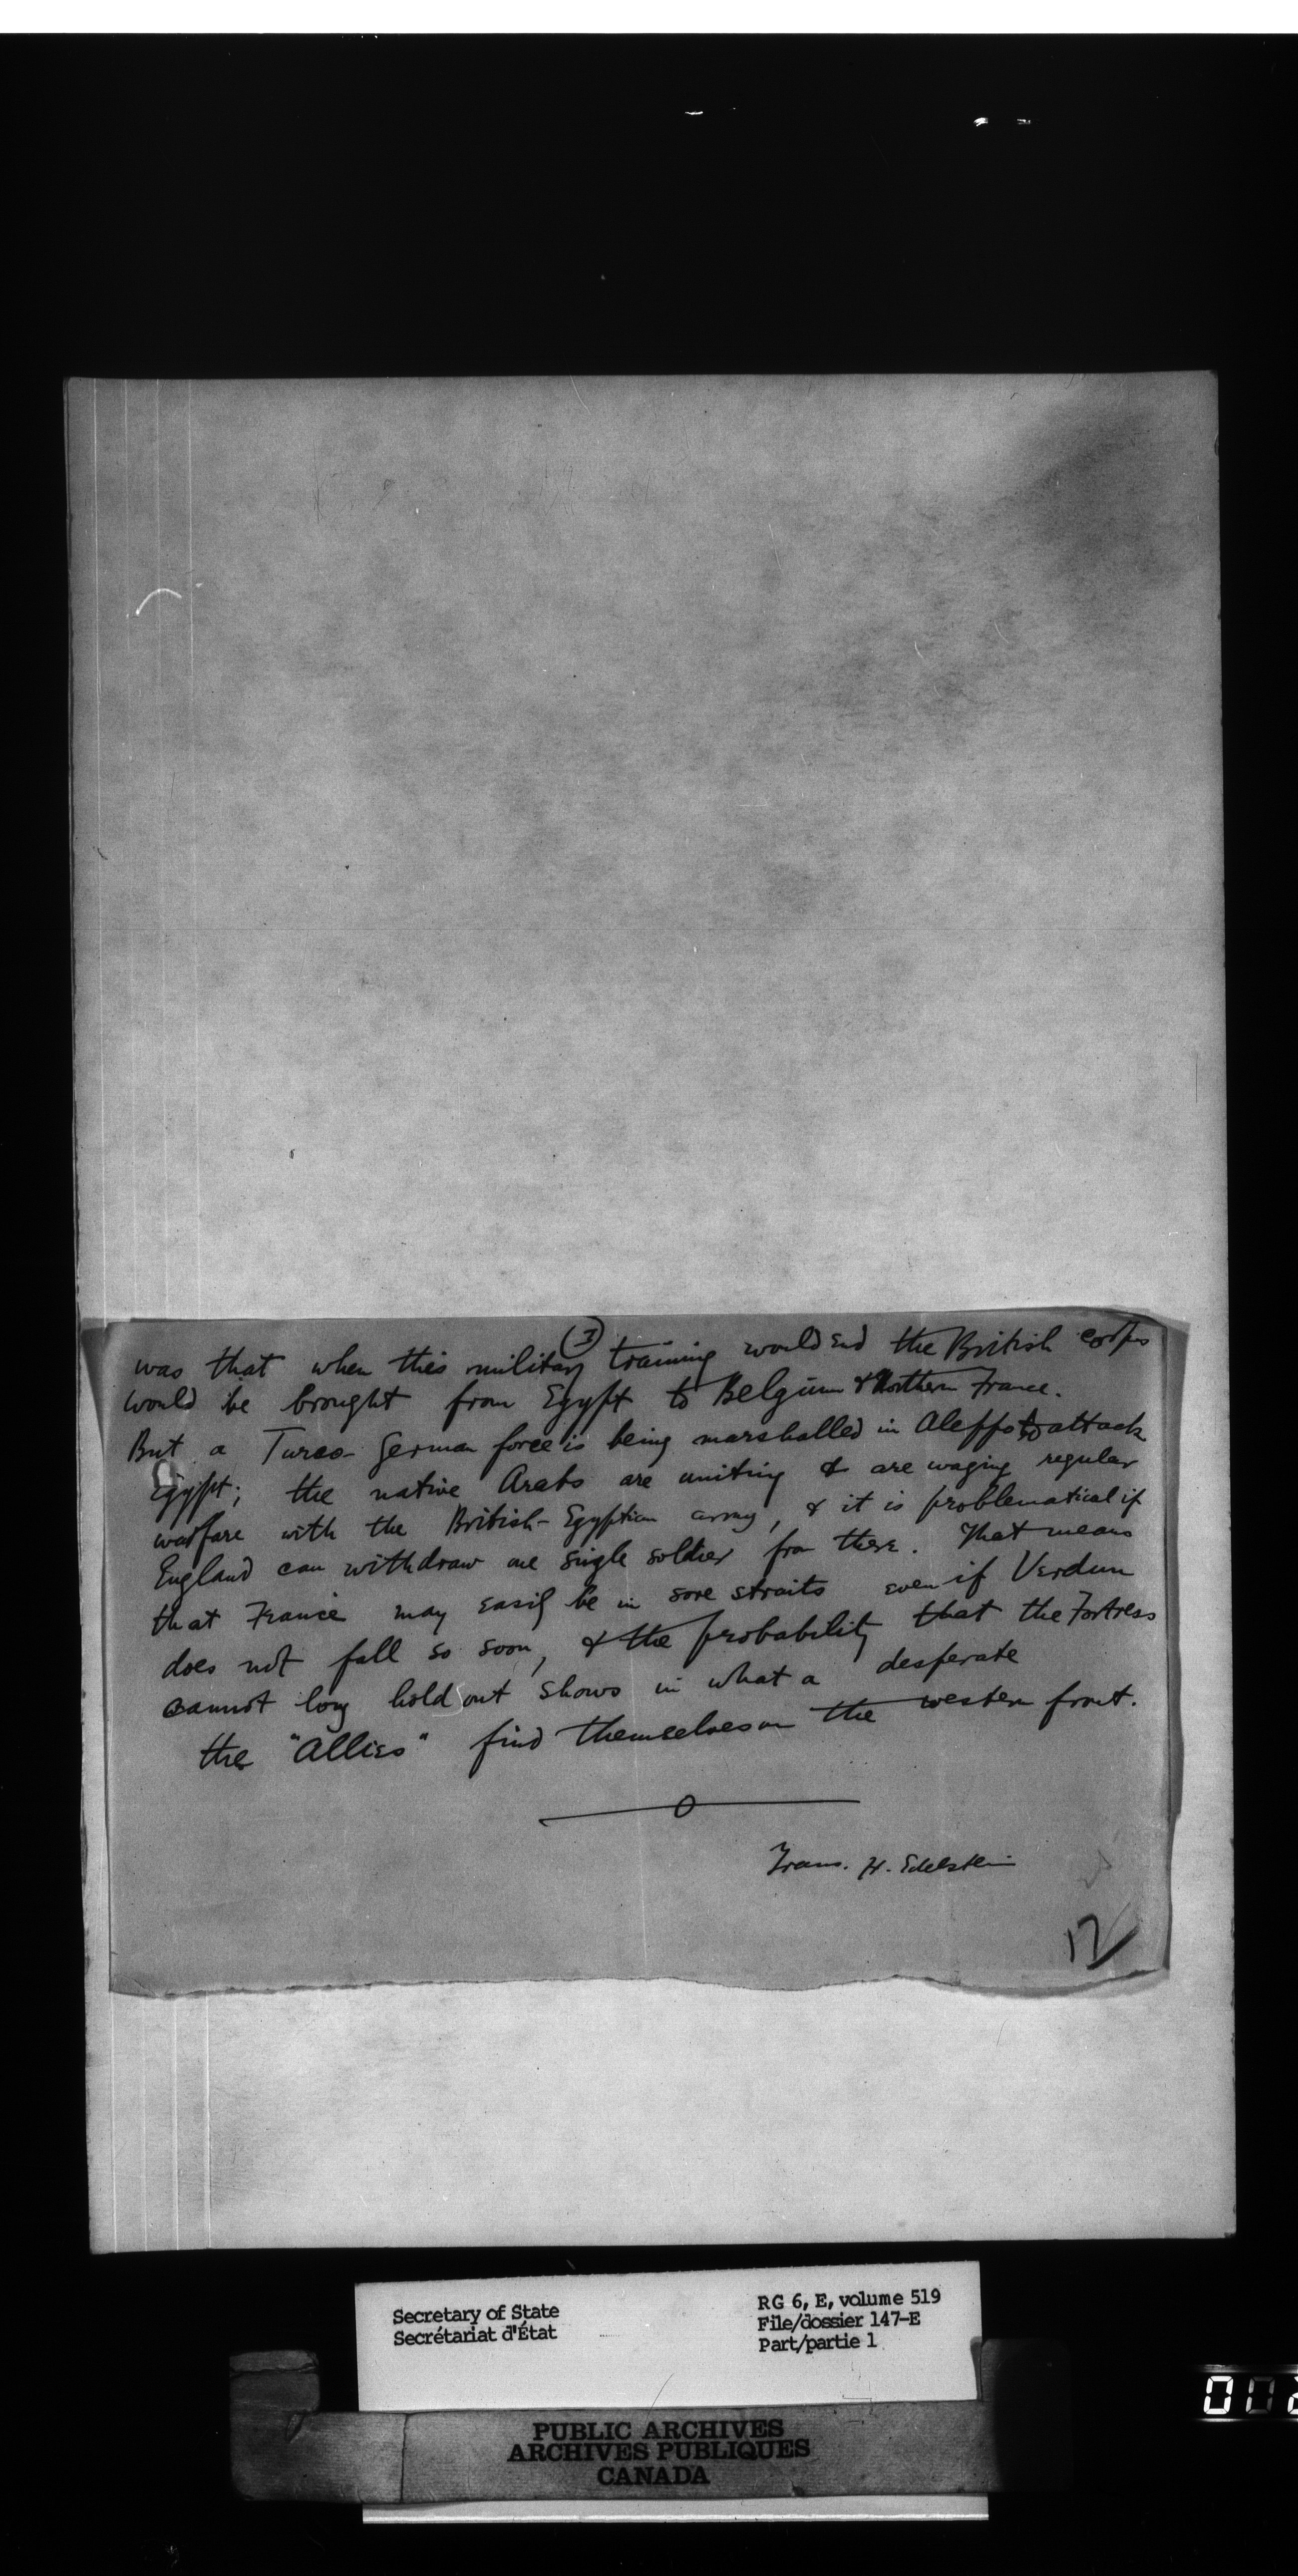 (3)
was that when this military training would end the British corps
would be brought from Egypt to Belgium & Northern France.
But a Turco-German force is being marshalled in Aleppo to attack
Egypt; the native Arabs are uniting & are waging regular
warfare with the British-Egyptian army, & it is problematical if
England can withdraw one single soldier from there. That means
that France may easily be in sore straits even if Verdun
does not fall so soon, & the probability that the Fortress
cannot long hold out shows in what a desperate
the "Allies" find themselves on the western front.
Trans. H. Edelstein
12
Secretary of State
Secrétariat d'État
RG 6, E, volume 519
File/dossier 147-E
Part/partie 1
PUBLIC ARCHIVES
ARCHIVES PUBLIQUES
CANADA